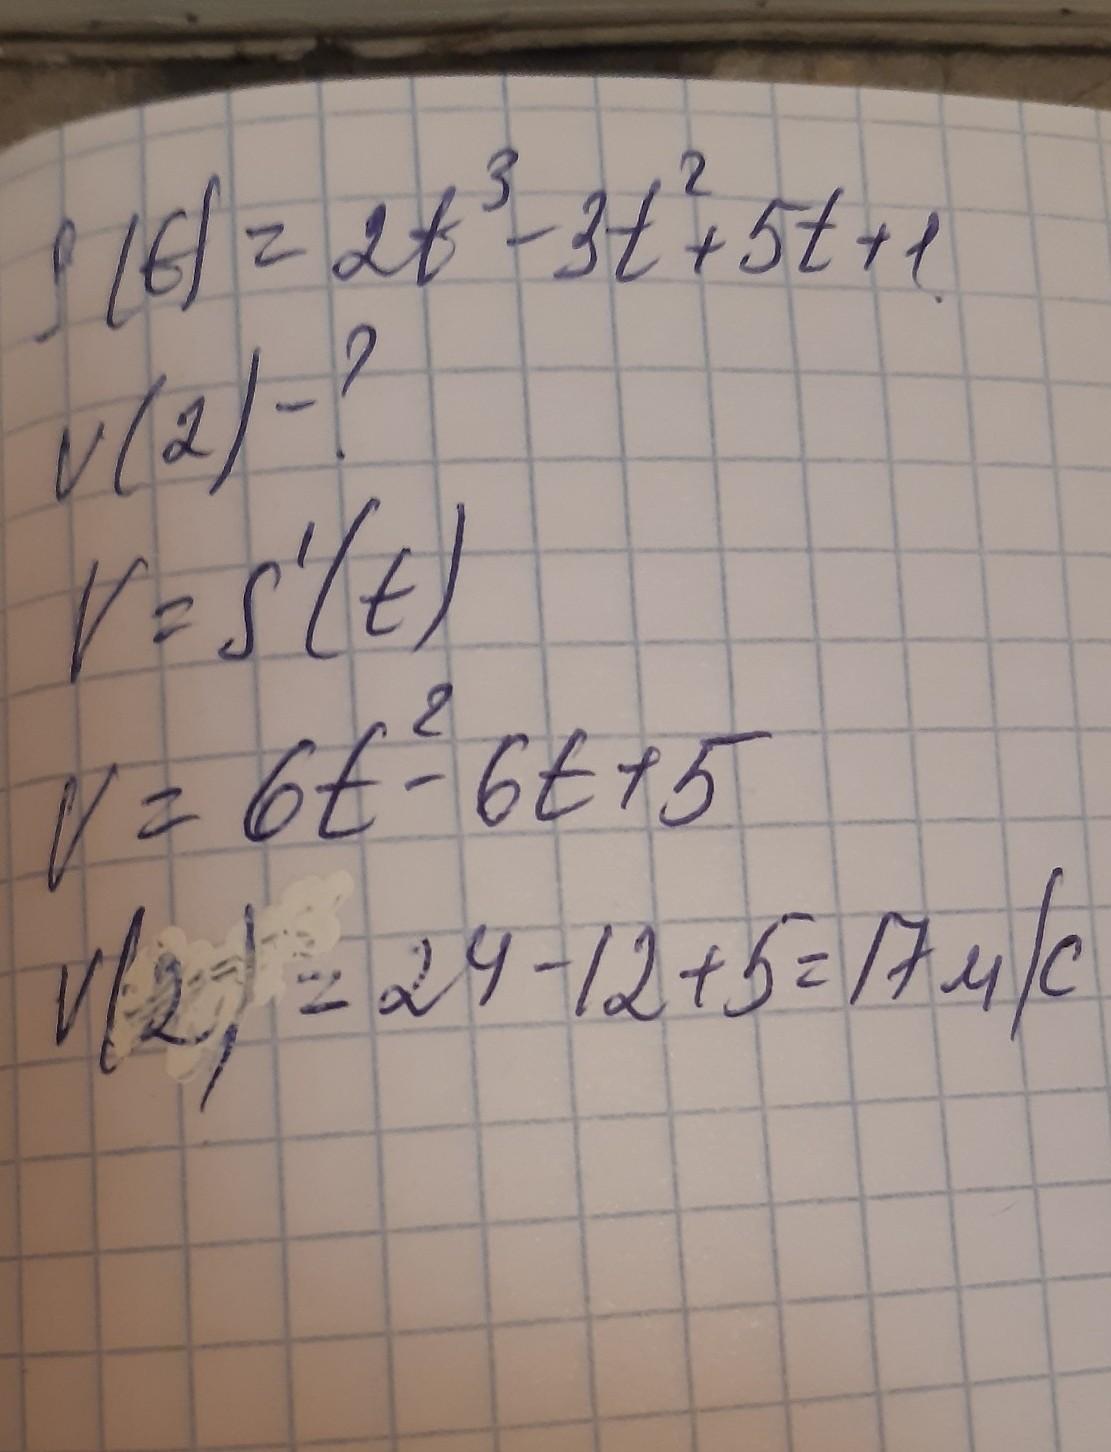 S(t) = 2t³ - 3t² + 5t + 1
v(2) - ?
V = S'(t)
V = 6t² - 6t + 5
v(2) = 24 - 12 + 5 = 17 м/с